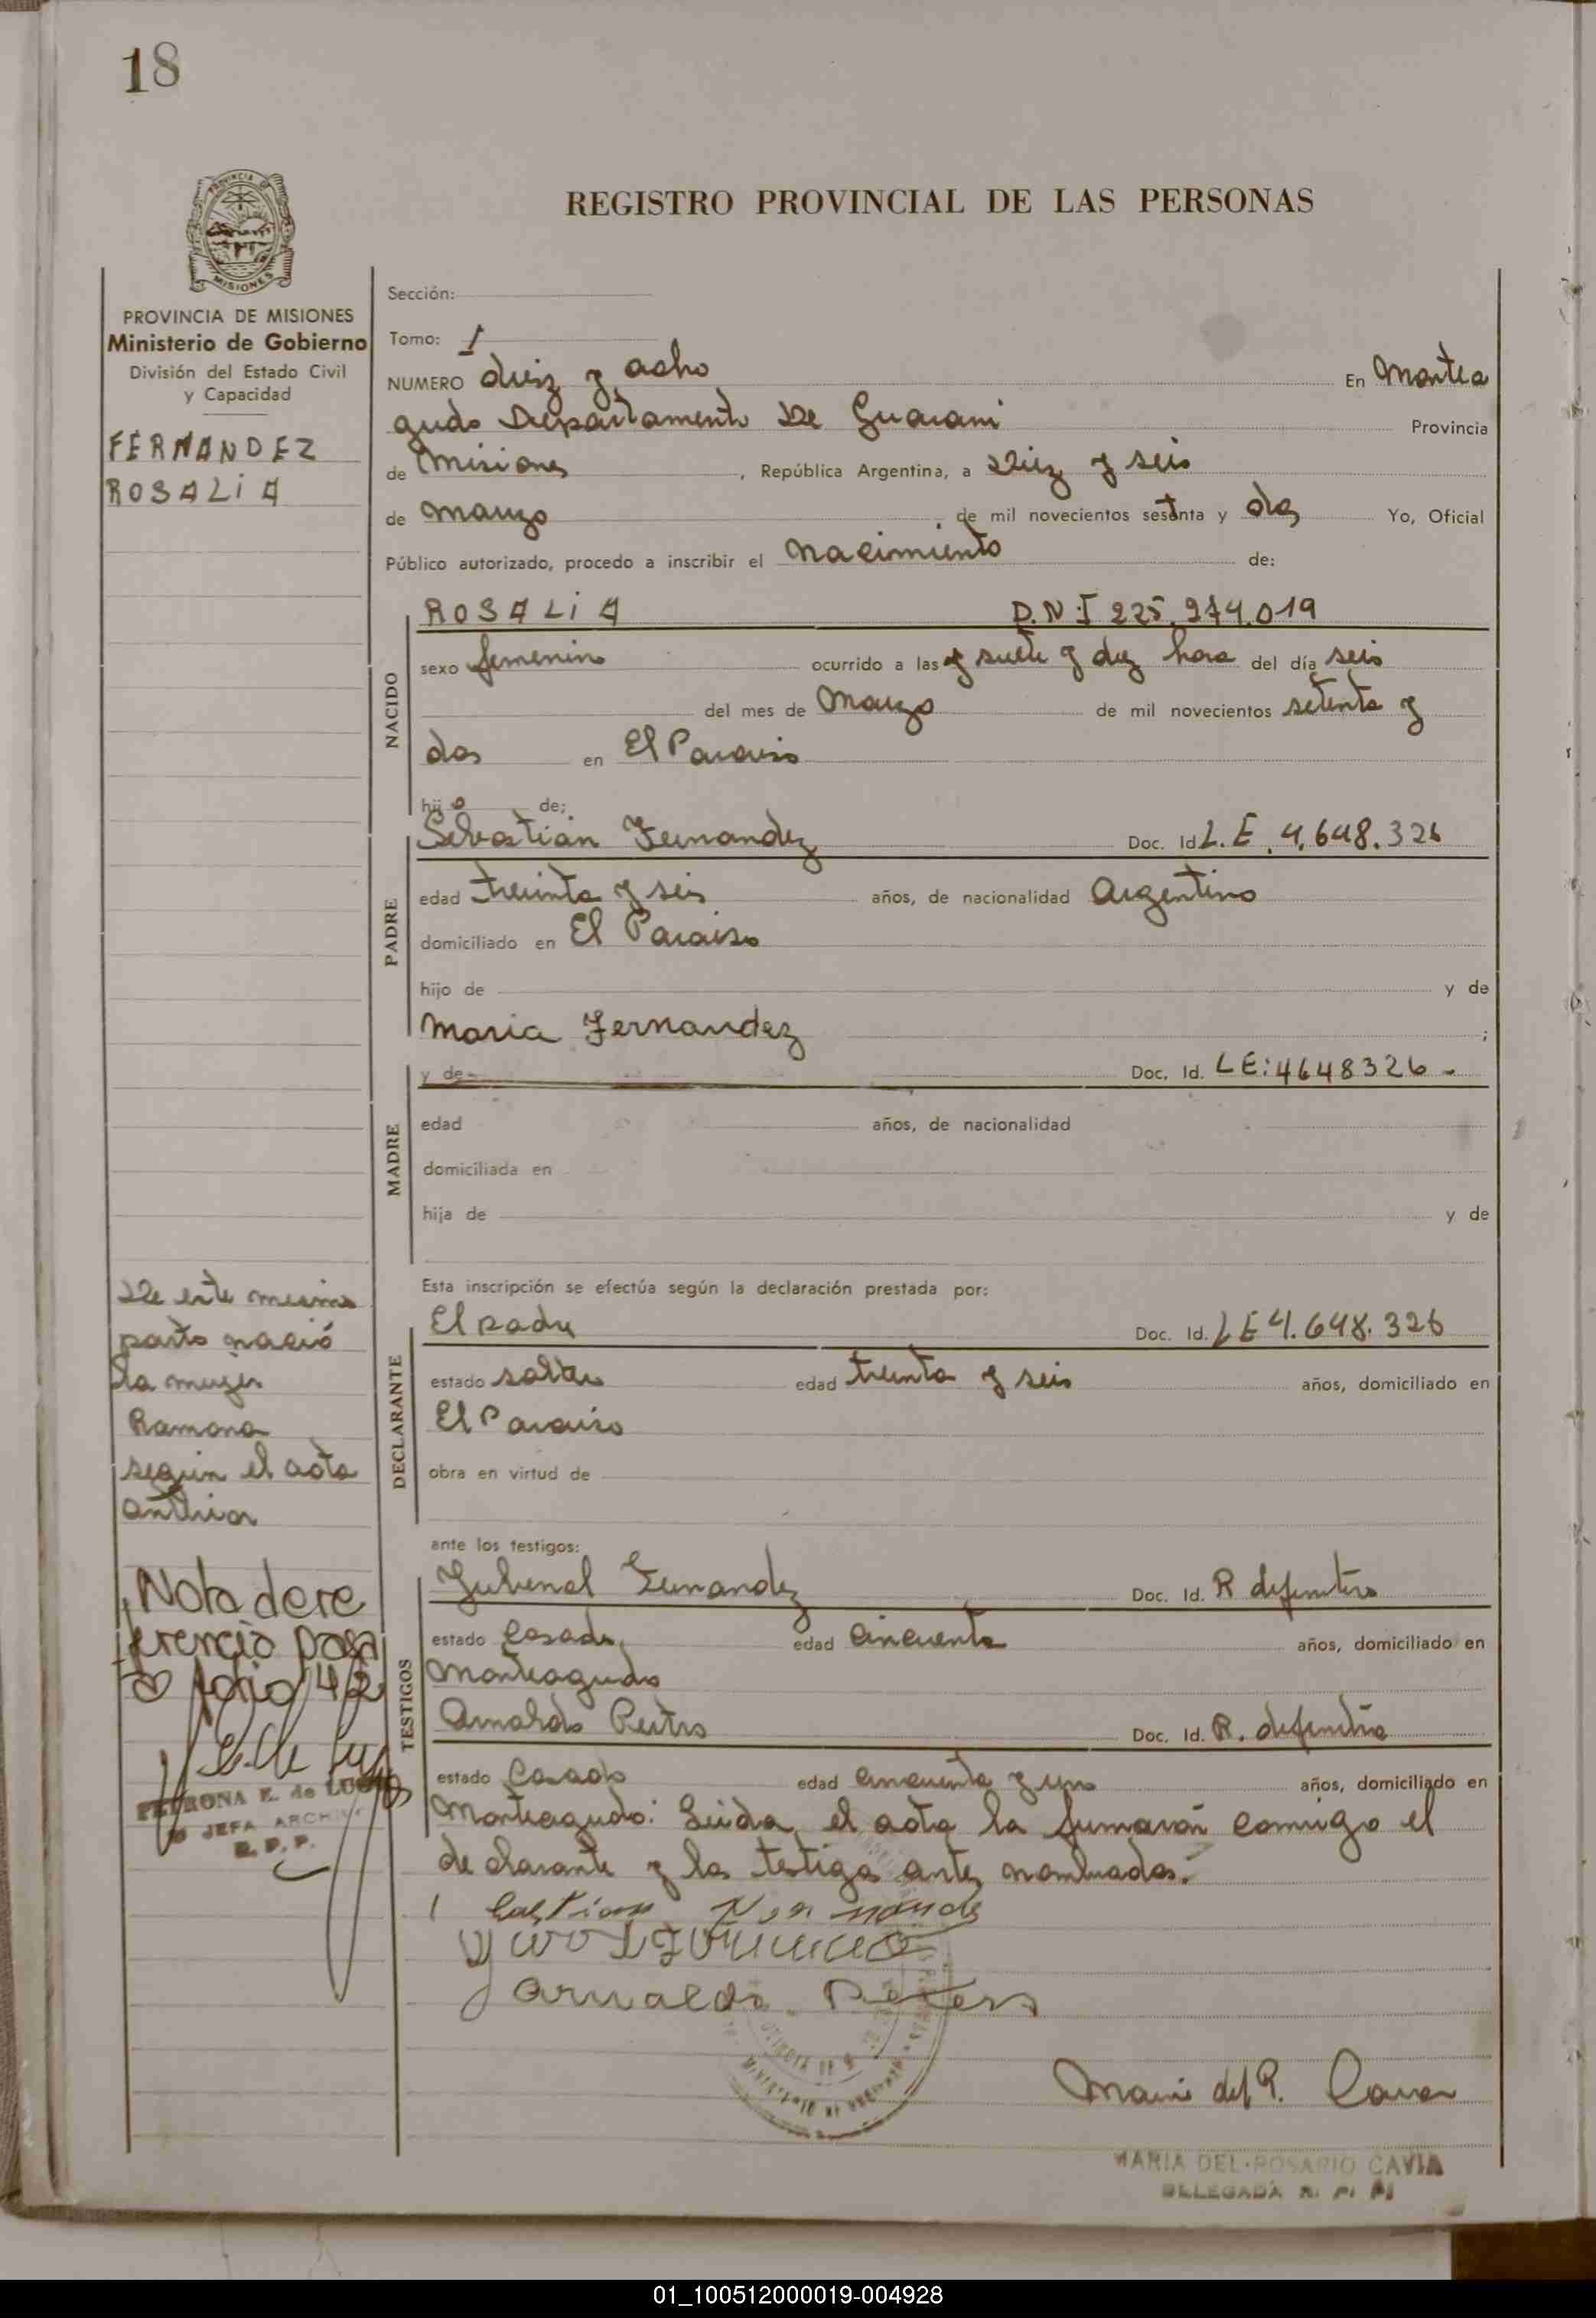 18
REGISTRO PROVINCIAL DE LAS PERSONAS
PROVINCIA DE MISIONES
Ministerio de Gobierno
División del Estado Civil
y Capacidad
FERNANDEZ
ROSALIA
Sección:
Tomo: 1
NUMERO diez y ocho En Montea
gudo Departamento De Guarani Provincia
de Misiones, República Argentina, a Diez y seis
de marzo de mil novecientos setenta y dos Yo, Oficial
Público autorizado, procedo a inscribir el nacimiento de:
NACIDO
ROSALIA D.N.I 225.274.019
sexo femenino ocurrido a las siete y diez hora del día seis
del mes de Marzo de mil novecientos setenta y
dos en El Paraiso
hijo de:
PADRE
Sebastián Fernandez Doc. Id L.E. 4.648.326
edad treinta y seis años, de nacionalidad Argentino
domiciliado en El Paraiso
hijo de y de
Maria Fernandez ;
MADRE
y de Doc. Id. LE:4648326-
edad años, de nacionalidad
domiciliada en
hija de y de
Esta inscripción se efectúa según la declaración prestada por:
DECLARANTE
El padre Doc. Id. LE 4.648.326
estado soltero edad treinta y seis años, domiciliado en
El Paraiso
obra en virtud de
ante los testigos:
TESTIGOS
Jubenal Fernandez Doc. Id. R definitivo
estado Casado edad cincuenta años, domiciliado en
Monteagudo
Arnaldo Doc. Id. R. definitiva
estado Casado edad cincuenta y uno años, domiciliado en
Monteagudo. Leida el acta la firmaron conmigo el
declarante y los testigos antes nombrados.
De este mismo
parto nació
la mujer
Ramona
según el acta
anterior
Nota de re
ferencia pasa
folio 42
PETRONA E. de
JEFA ARCHIVO
R.P.P.
Arnaldo Peters
Maria del R. Cavia
MARIA DEL ROSARIO CAVIA
DELEGADA R. P. P.
01_100512000019-004928